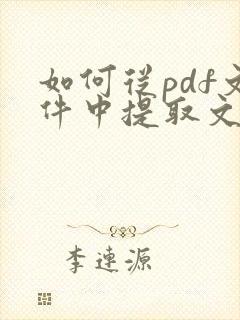 如何從pdf文
件中提取文
李連源